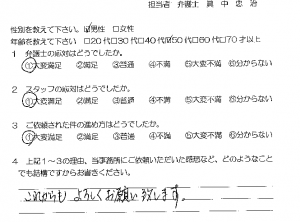 担当者 弁護士 眞中忠治
性別を教えて下さい。☑男性 □女性
年齢を教えて下さい □20代□30代□40代☑50代□60代□70才以上
1 弁護士の応対はどうでしたか。
①大変満足 ②満足 ③普通 ④不満 ⑤大変不満 ⑥分からない
2 スタッフの応対はどうでしたか。
①大変満足 ②満足 ③普通 ④不満 ⑤大変不満 ⑥分からない
3 ご依頼された件の進め方はどうでしたか。
①大変満足 ②満足 ③普通 ④不満 ⑤大変不満 ⑥分からない
4 上記1～3の理由、当事務所にご依頼いただいた感想など、どのようなこと
でも結構ですからお書きください。
これからも よろしくお願い致します。